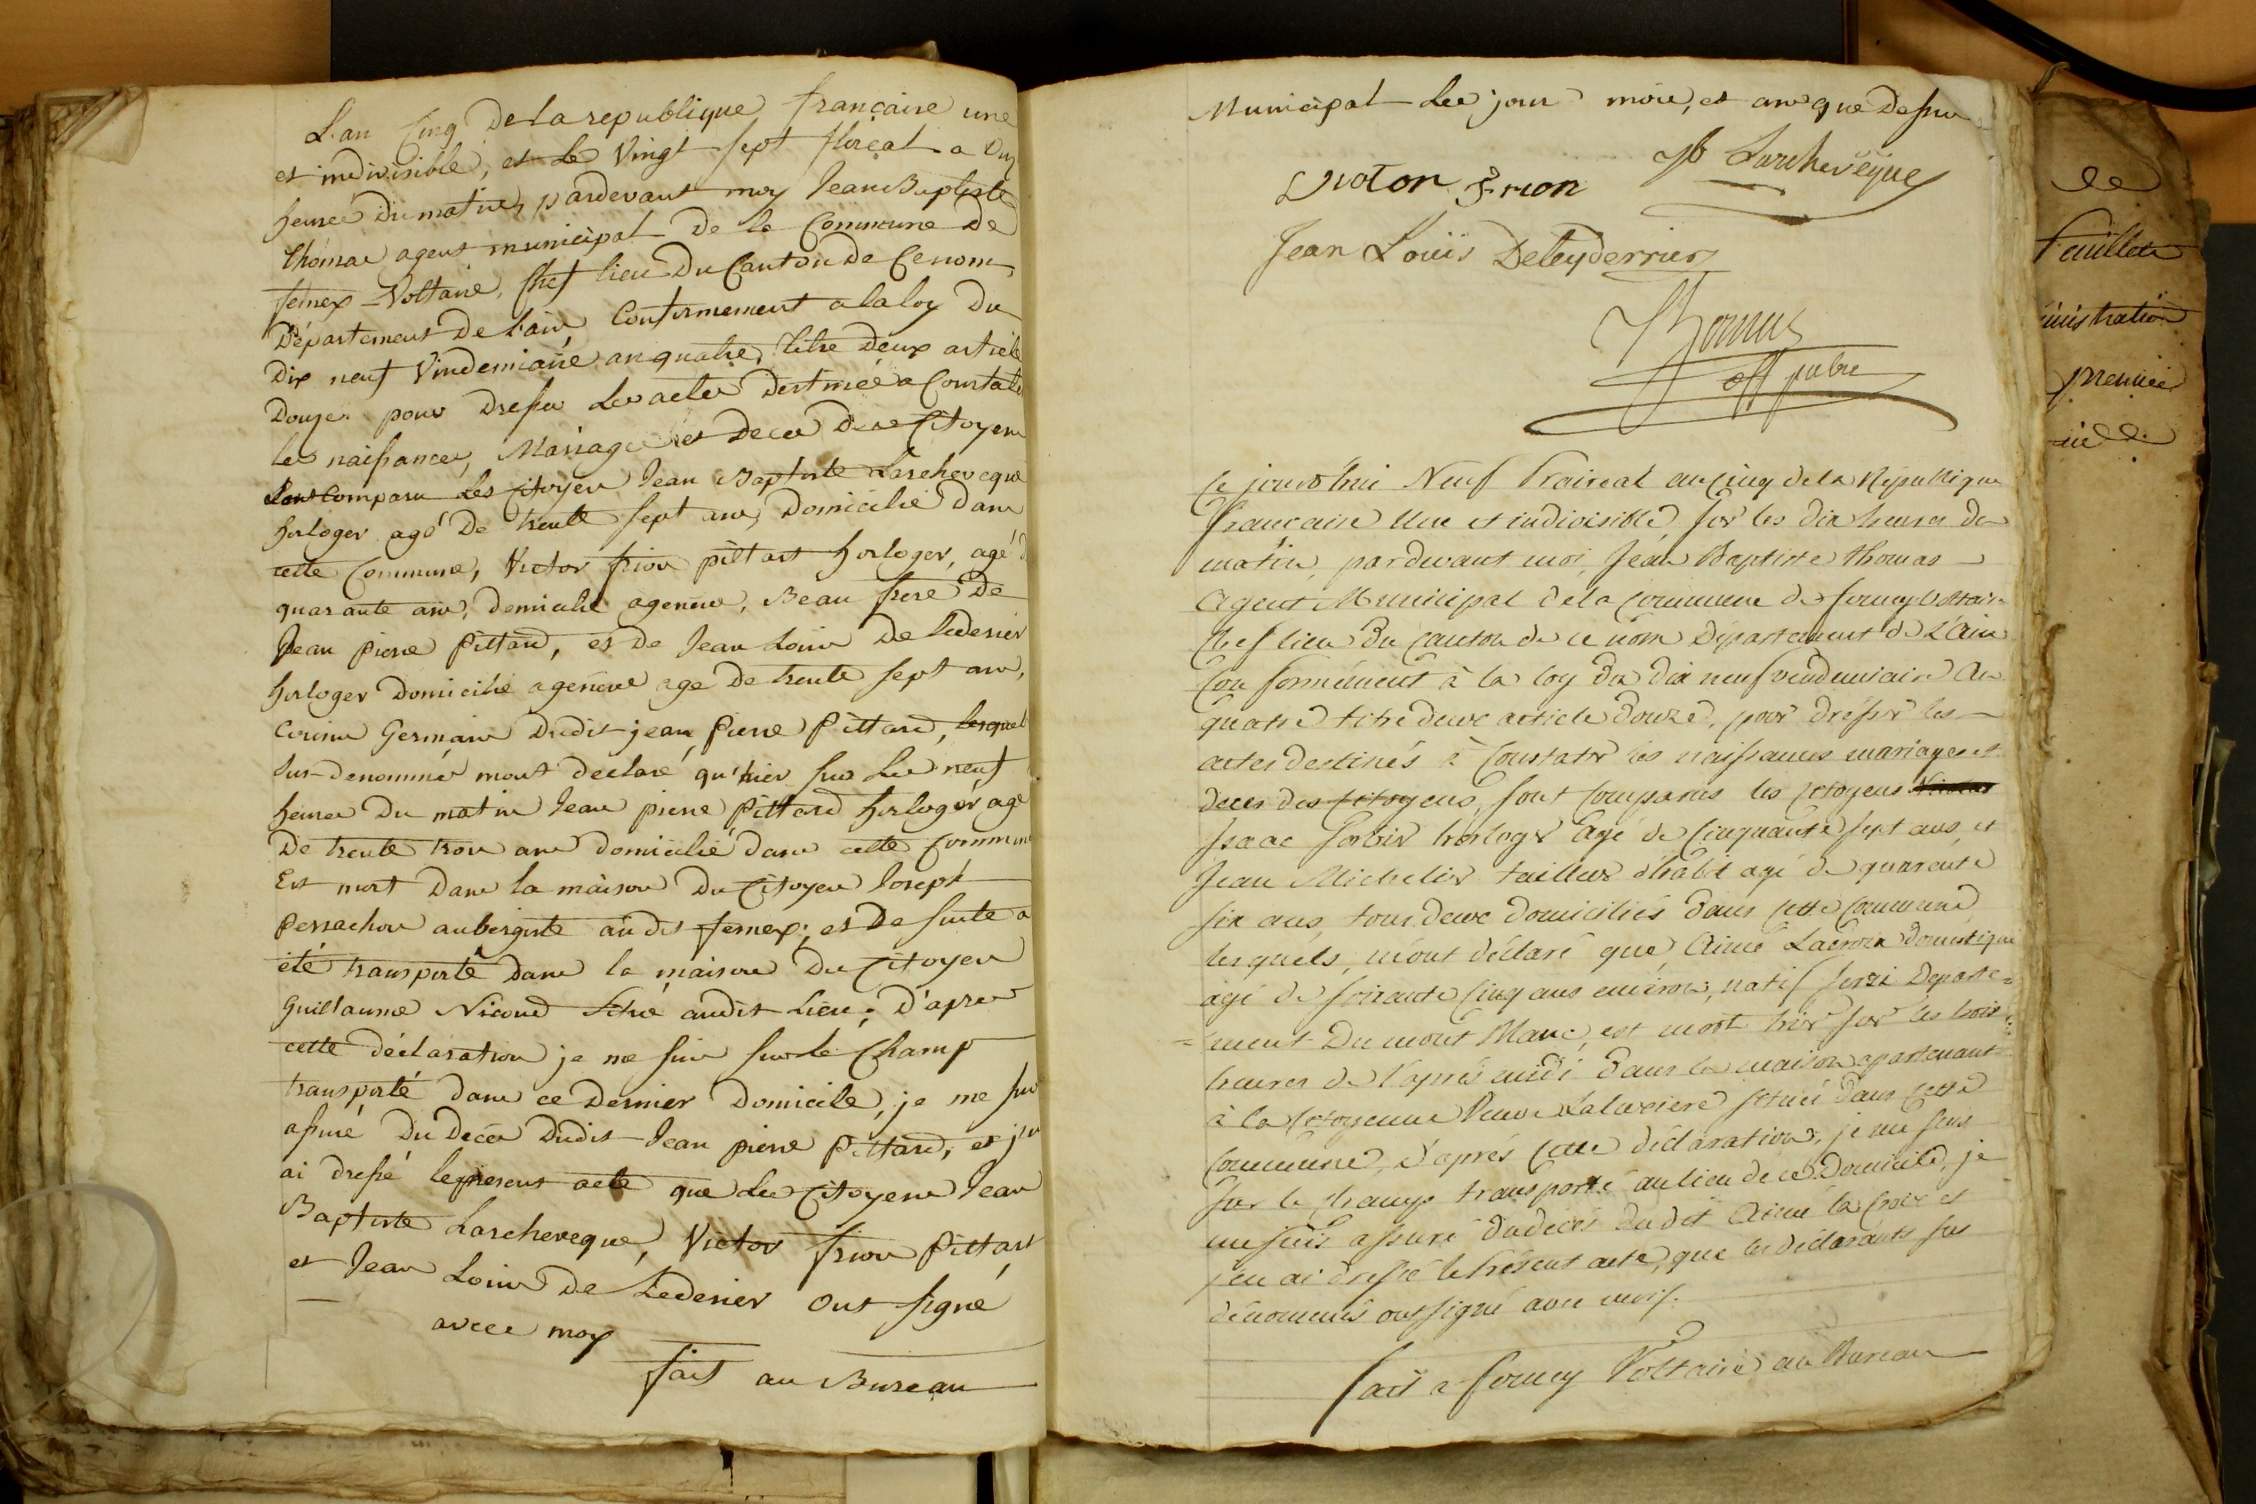 L'an Cinq De la republique française une
et indivisible, et Le Vingt sept floréal a Dix
heures Du matin, pardevant moy Jean Baptiste
Thomas agent municipal De la Commune De
fernex-Voltaire, Chef lieu Du Canton De Ce nom,
Département De L'ain, Conformement a la loy Du
Dix neuf Vindemiaire an quatre, titre Deux article
Douze pour Dresser Les actes Destinés a Constater
les naissances, Mariages et Deces Des Citoyens
sont Comparu Les Citoyen Jean Baptiste Larcheveque
horloger agé De trente sept ans, Domicilié Dans
cette Commune, Victor frion pittart horloger, agé d
quarante ans, Domicilié a geneve, Beau frere De
Jean Pierre Pittard, et De Jean Louis De lederier
horloger Domicilié a geneve age De trente sept ans,
Cousin Germain Dudit jean Pierre Pittard, lesquels
sus-denommés mont declaré qu'hier sur Les neuf
heures Du matin Jean pierre Pittard horloger age
De trente trois ans domicilié dans cette Commune
Est mort Dans la maison Du Citoyen Joseph
Perrachon aubergiste audit fernex, et De suite a
été transporté Dans la maison Du Citoyen
Guillaume Nicoud situé audit Lieu; D'apres
cette déclaration je me suis sur le Champ
transporté dans ce Dernier Domicile, je me suis
assuré Du Deces Dudit Jean pierre Pittard, et j'en
ai dressé le present acte que Les Citoyens Jean
Baptiste Larcheveque, Victor frion Pittart
et Jean Louis De Lederier Ont signé
avec moy
fait au Bureau
Municipal Les jour mois, et an que Dessus
Jb Larchevêque
Victor Frion
Jean Louis Deleyderrier
Thomas
off pubc
Ce jourd'hui Neuf Prairial an cinq de la République
française Une et indivisible sur les dix heures du
matin, par devant moi, Jean Baptiste Thomas
Agent Municipal de la Commune de ferney Voltaire
Chef lieu Du Canton de ce nom Département de L'Ain
Conformément à la loy du dix neuf vindemiaire An
quatre titre deux article douze, pour dresser les
actes destinés à Constater les naissances mariages et
deces des Citoyens, sont Comparus les Citoyens
Isaac horloger Agé de Cinquante sept ans et
Jean Michelin tailleur d'habit agé de quarente
six ans, tous deux domiciliés dans cette Commune
lesquels, m'ont déclaré que Aimé Lacroix Domestique
agé de soixante Cinq ans environ, natif Departe=
=ment Du mont Blanc, est mort hier sur les trois
heures de l'après midi dans la maison apartenant
à la Citoyenne Veuve situé dans cette
Commune, d'après cette déclaration, je me suis
sur le champ transporté au lieu de ce Domicile, je
me suis assuré du décès du dit Aimé la Croix et
j'en ai dressé le présent acte, que les déclarants sus
dénommés ont signé avec moi.
fait a ferney Voltaire au Bureau
Feuillets
inistration
premier